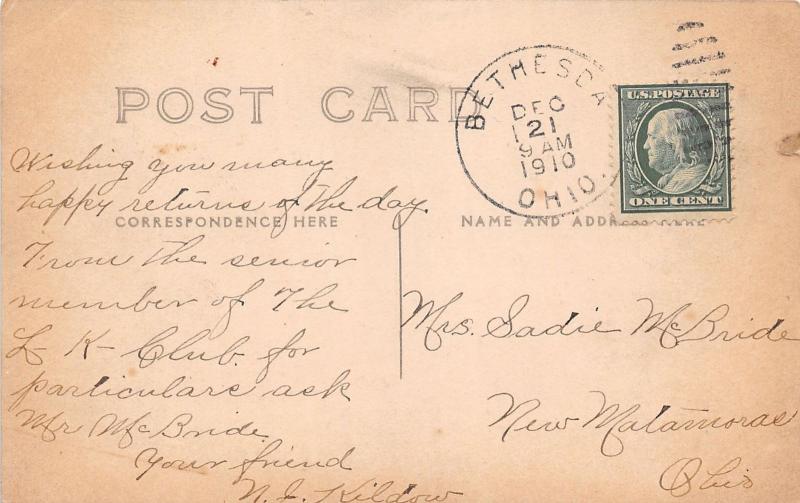 POST CARD
BETHESDA
DEC
21
9 AM
1910
OHIO.
U.S. POSTAGE
ONE CENT
Wishing you many
happy returns of the day.
CORRESPONDENCE HERE
From the senior
member of The
L K Club. for
particulars ask
Mr McBride.
Your friend
N. I. Kildow
NAME AND ADDRESS
Mrs. Sadie McBride
New Matamoras
Ohio